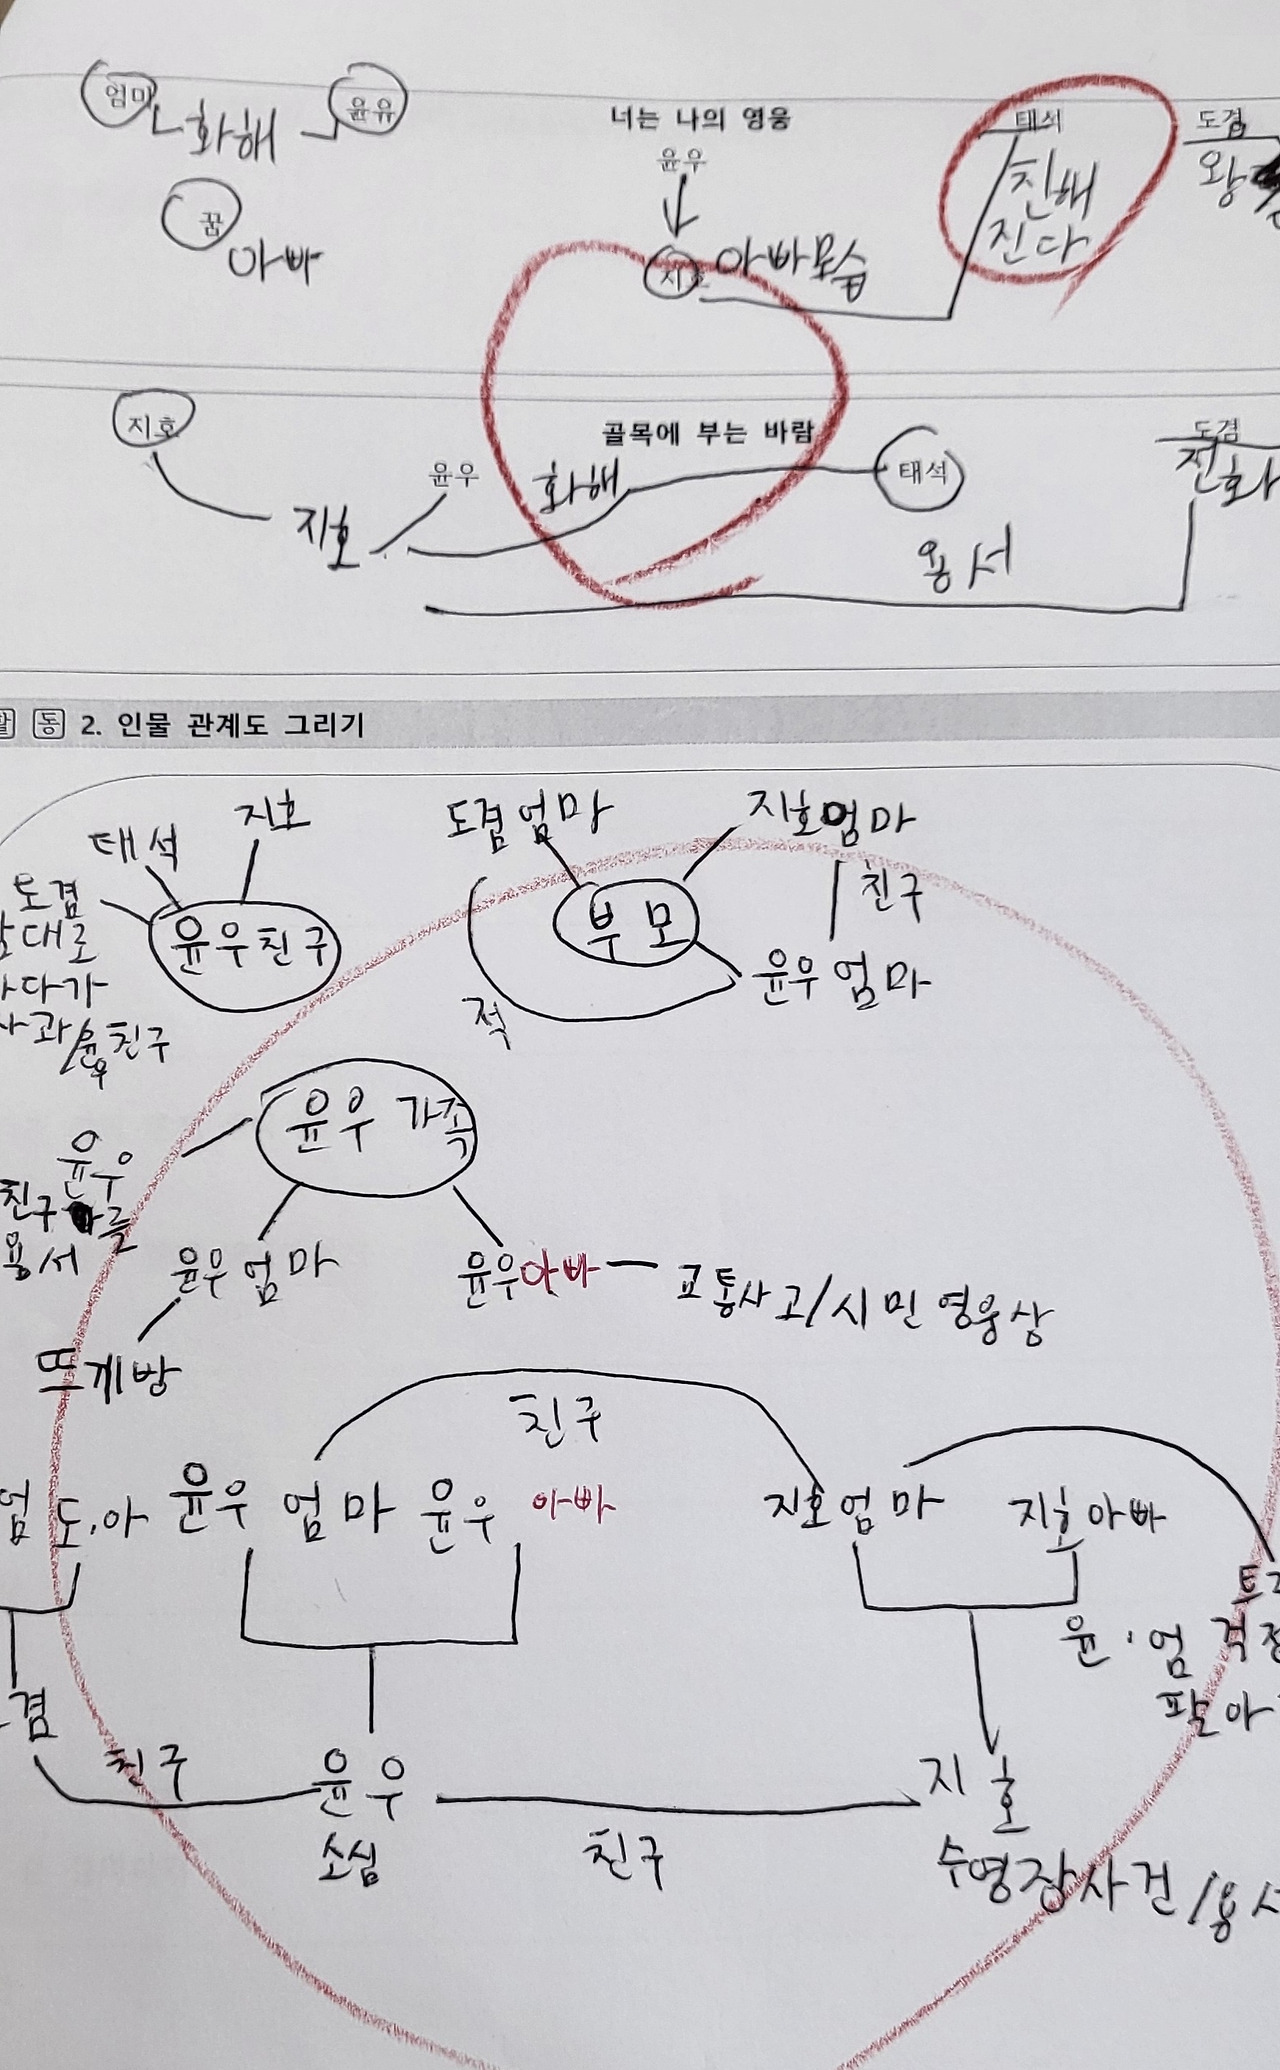 엄마 화해 윤유
꿈 아빠
너는 나의 영웅
윤우
지호 아빠모습
태석
친해
진다
도겸
왕
지호
골목에 부는 바람
윤우 화해 태석
지호
용서
도겸
전화
활 동 2. 인물 관계도 그리기
태석 지호
도겸
윤우친구
대로
다가
사과/윤우친구
도겸엄마 지호엄마
부모 친구
윤우엄마
적
윤우 가족
윤우
친구
용서
윤우엄마
뜨게방
윤우아빠 교통사고/시민영웅상
친구
엄 도.아 윤우 엄마 윤우 아빠 지호엄마 지호아빠
윤.엄
팔아
겸 친구 윤우 친구 지호
소심
수영장사건/용서